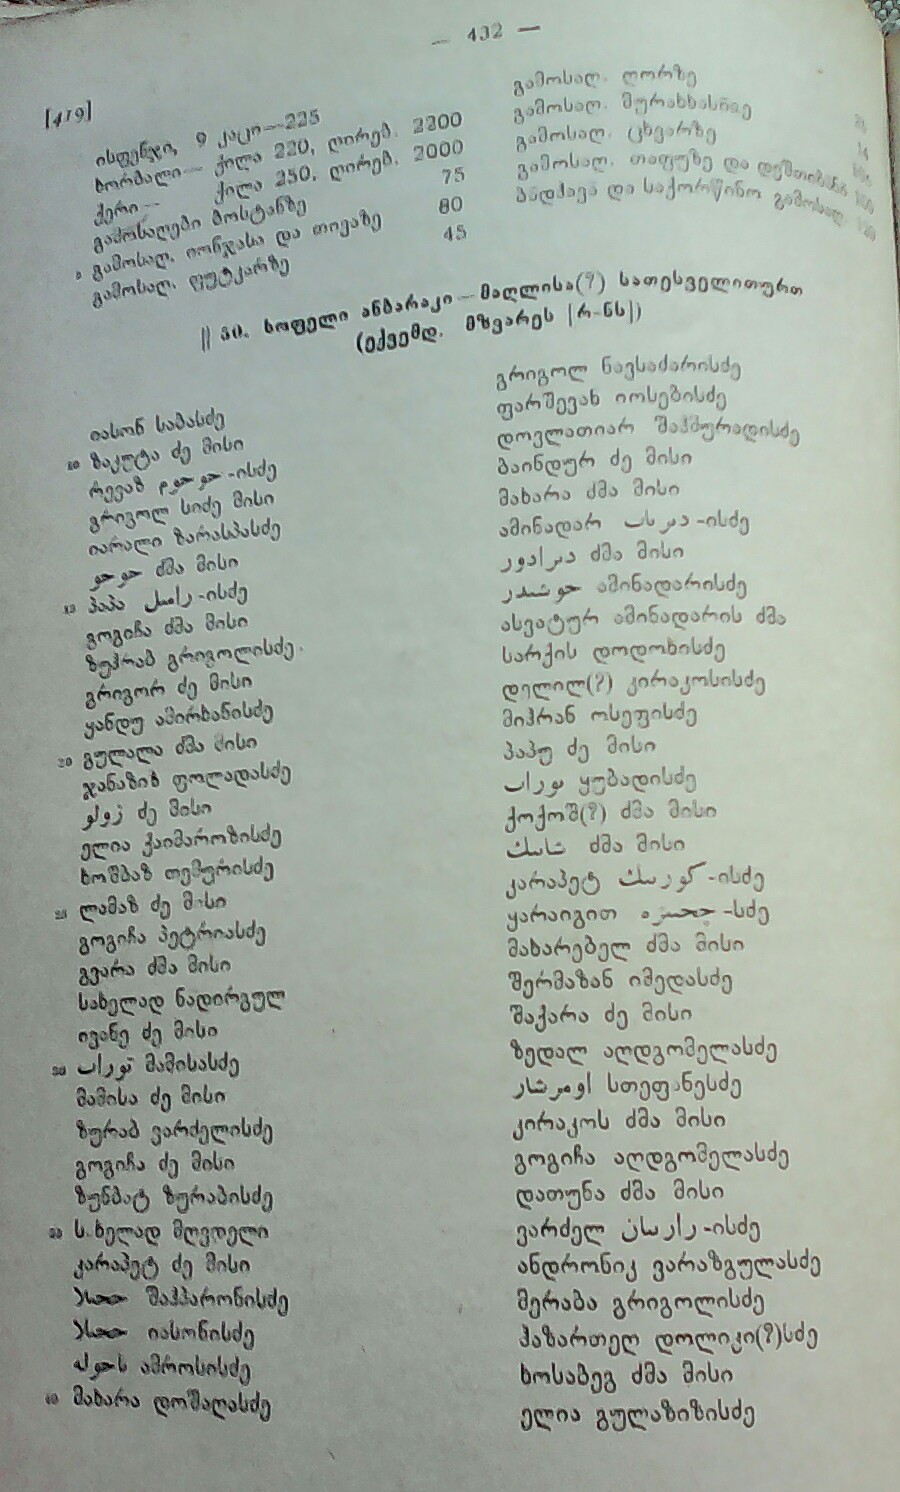 — 432 —
[419]
ისფენჯი, 9 კაცი—225
ხორბალი— ქილა 220, ღირებ. 2200
ქერი— ქილა 250, ღირებ. 2000
გამოსაღები ბოსტანზე 75
გამოსაღ. იონჯასა და თივაზე 80
გამოსაღ. ფუტკარზე 45
გამოსაღ. ღორზე
გამოსაღ. მურახხასიაზე
გამოსაღ. ცხვარზე
გამოსაღ. თაფუზე და დეშთიბანი
ბადჰავა და საქორწინო გამოსაღ.
|| 30. სოფელი ანბარაკი—მაღლისა(?) სათესველითურთ
(ექვემდ. მზვარეს [რ-ნს])
იასონ საბასძე
10 ზაკუტა ძე მისი
რევაზ -ისძე
გრიგოლ სიძე მისი
იარალი ზარასპასძე
حوحو ძმა მისი
15 პაპა رامىل-ისძე
გოგიჩა ძმა მისი
ზუჰრაბ გრიგოლისძე
გრიგორ ძე მისი
ყანდუ ამირხანისძე
20 გულალა ძმა მისი
ჯანაზიზ ფოლადასძე
زولو ძე მისი
ელია ქაიმაროზისძე
ხოშბაზ თემურისძე
25 ლამაზ ძე მისი
გოგიჩა პეტრიასძე
გვარა ძმა მისი
სახელად ნადირგულ
ივანე ძე მისი
30 توراب მამისასძე
მამისა ძე მისი
ზურაბ ვარძელისძე
გოგიჩა ძე მისი
ზუნბატ ზურაბისძე
35 სახელად მღვდელი
კარაპეტ ძე მისი
შაჰპარონისძე
იასონისძე
ამროსისძე
40 მახარა დოშაღასძე
გრიგოლ ნავსაძარისძე
ფარშევახ იოსებისძე
დოვლათიარ შაჰმურადისძე
ბაინდურ ძე მისი
მახარა ძმა მისი
ამინადარ -ისძე
ძმა მისი
ამინადარისძე
ასვატურ ამინადარის ძმა
სარქის დოდოხისძე
დელილ(?) კირაკოსისძე
მიჰრან ოსეფისძე
პაპუ ძე მისი
ყუბადისძე
ქოქოშ(?) ძმა მისი
ძმა მისი
კარაპეტ -ისძე
ყარაიგით -სძე
მახარებელ ძმა მისი
შერმაზან იმედასძე
შაქარა ძე მისი
ზედალ აღდგომელასძე
სთეფანესძე
კირაკოს ძმა მისი
გოგიჩა აღდგომელასძე
დათუნა ძმა მისი
ვარძელ -ისძე
ანდრონიკ ვარაზგულასძე
მერაბა გრიგოლისძე
ჰაზართელ დოლიკი(?)სძე
ხოსაბეგ ძმა მისი
ელია გულაზიზისძე